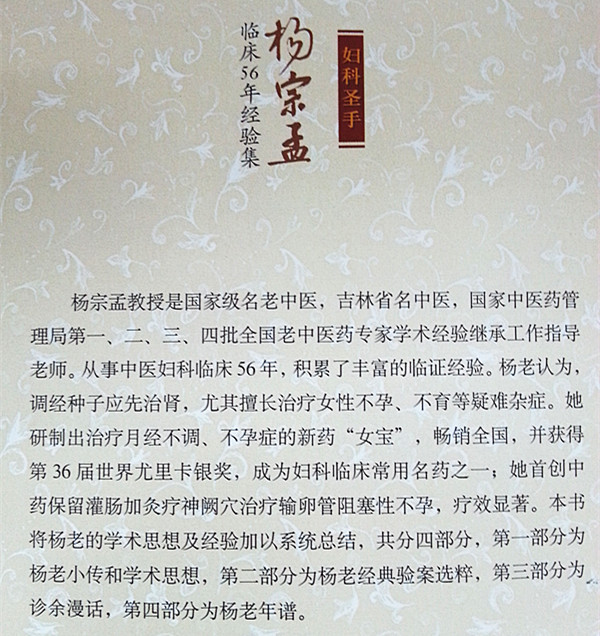 妇科圣手
杨宗孟
临床56年经验集
杨宗孟教授是国家级名老中医，吉林省名中医，国家中医药管
理局第一、二、三、四批全国老中医药专家学术经验继承工作指导
老师。从事中医妇科临床56年，积累了丰富的临证经验。杨老认为，
调经种子应先治肾，尤其擅长治疗女性不孕、不育等疑难杂症。她
研制出治疗月经不调、不孕症的新药“女宝”，畅销全国，并获得
第36届世界尤里卡银奖，成为妇科临床常用名药之一；她首创中
药保留灌肠加灸疗神阙穴治疗输卵管阻塞性不孕，疗效显著。本书
将杨老的学术思想及经验加以系统总结，共分四部分，第一部分为
杨老小传和学术思想，第二部分为杨老经典验案选粹，第三部分为
诊余漫话，第四部分为杨老年谱。